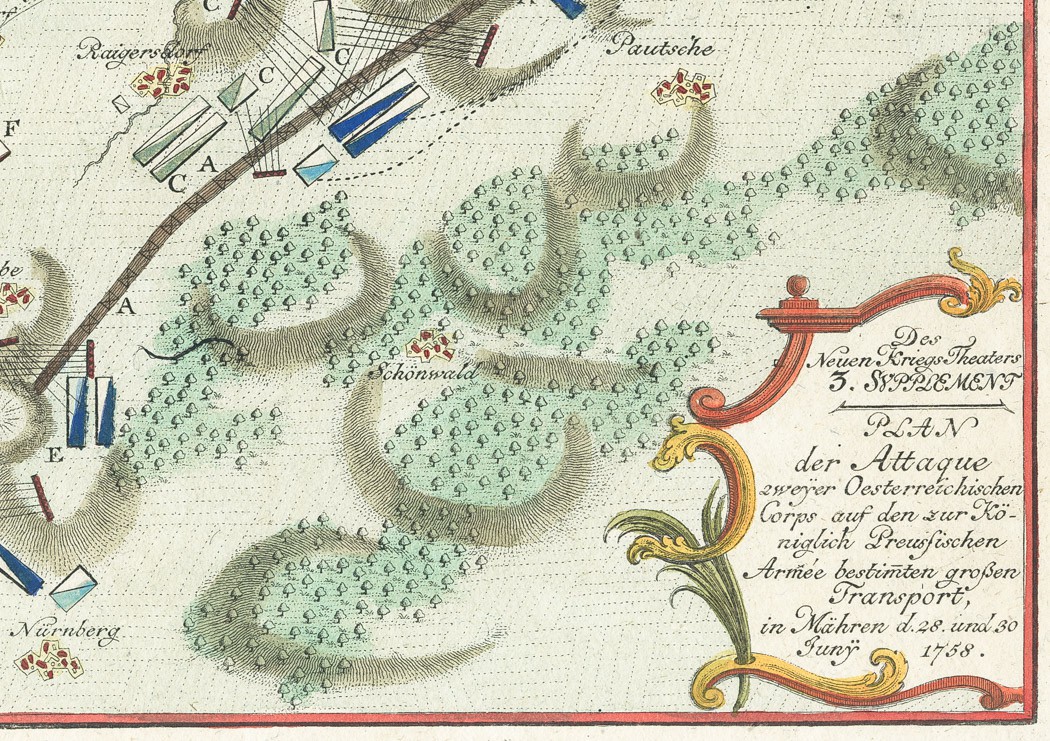 C
Raigersdorf
C
C
Pautsche
F
A
C
be
A
Schönwald
E
Nürnberg
Des
Neuen Kriegs-Theaters
3. SUPPLEMENT
PLAN
der Attaque
zweÿer Oesterreichischen
Corps auf den zur Kö-
niglich Preusischen
Armée bestim̄ten großen
Transport,
in Mähren d. 28. und 30
Junÿ 1758.